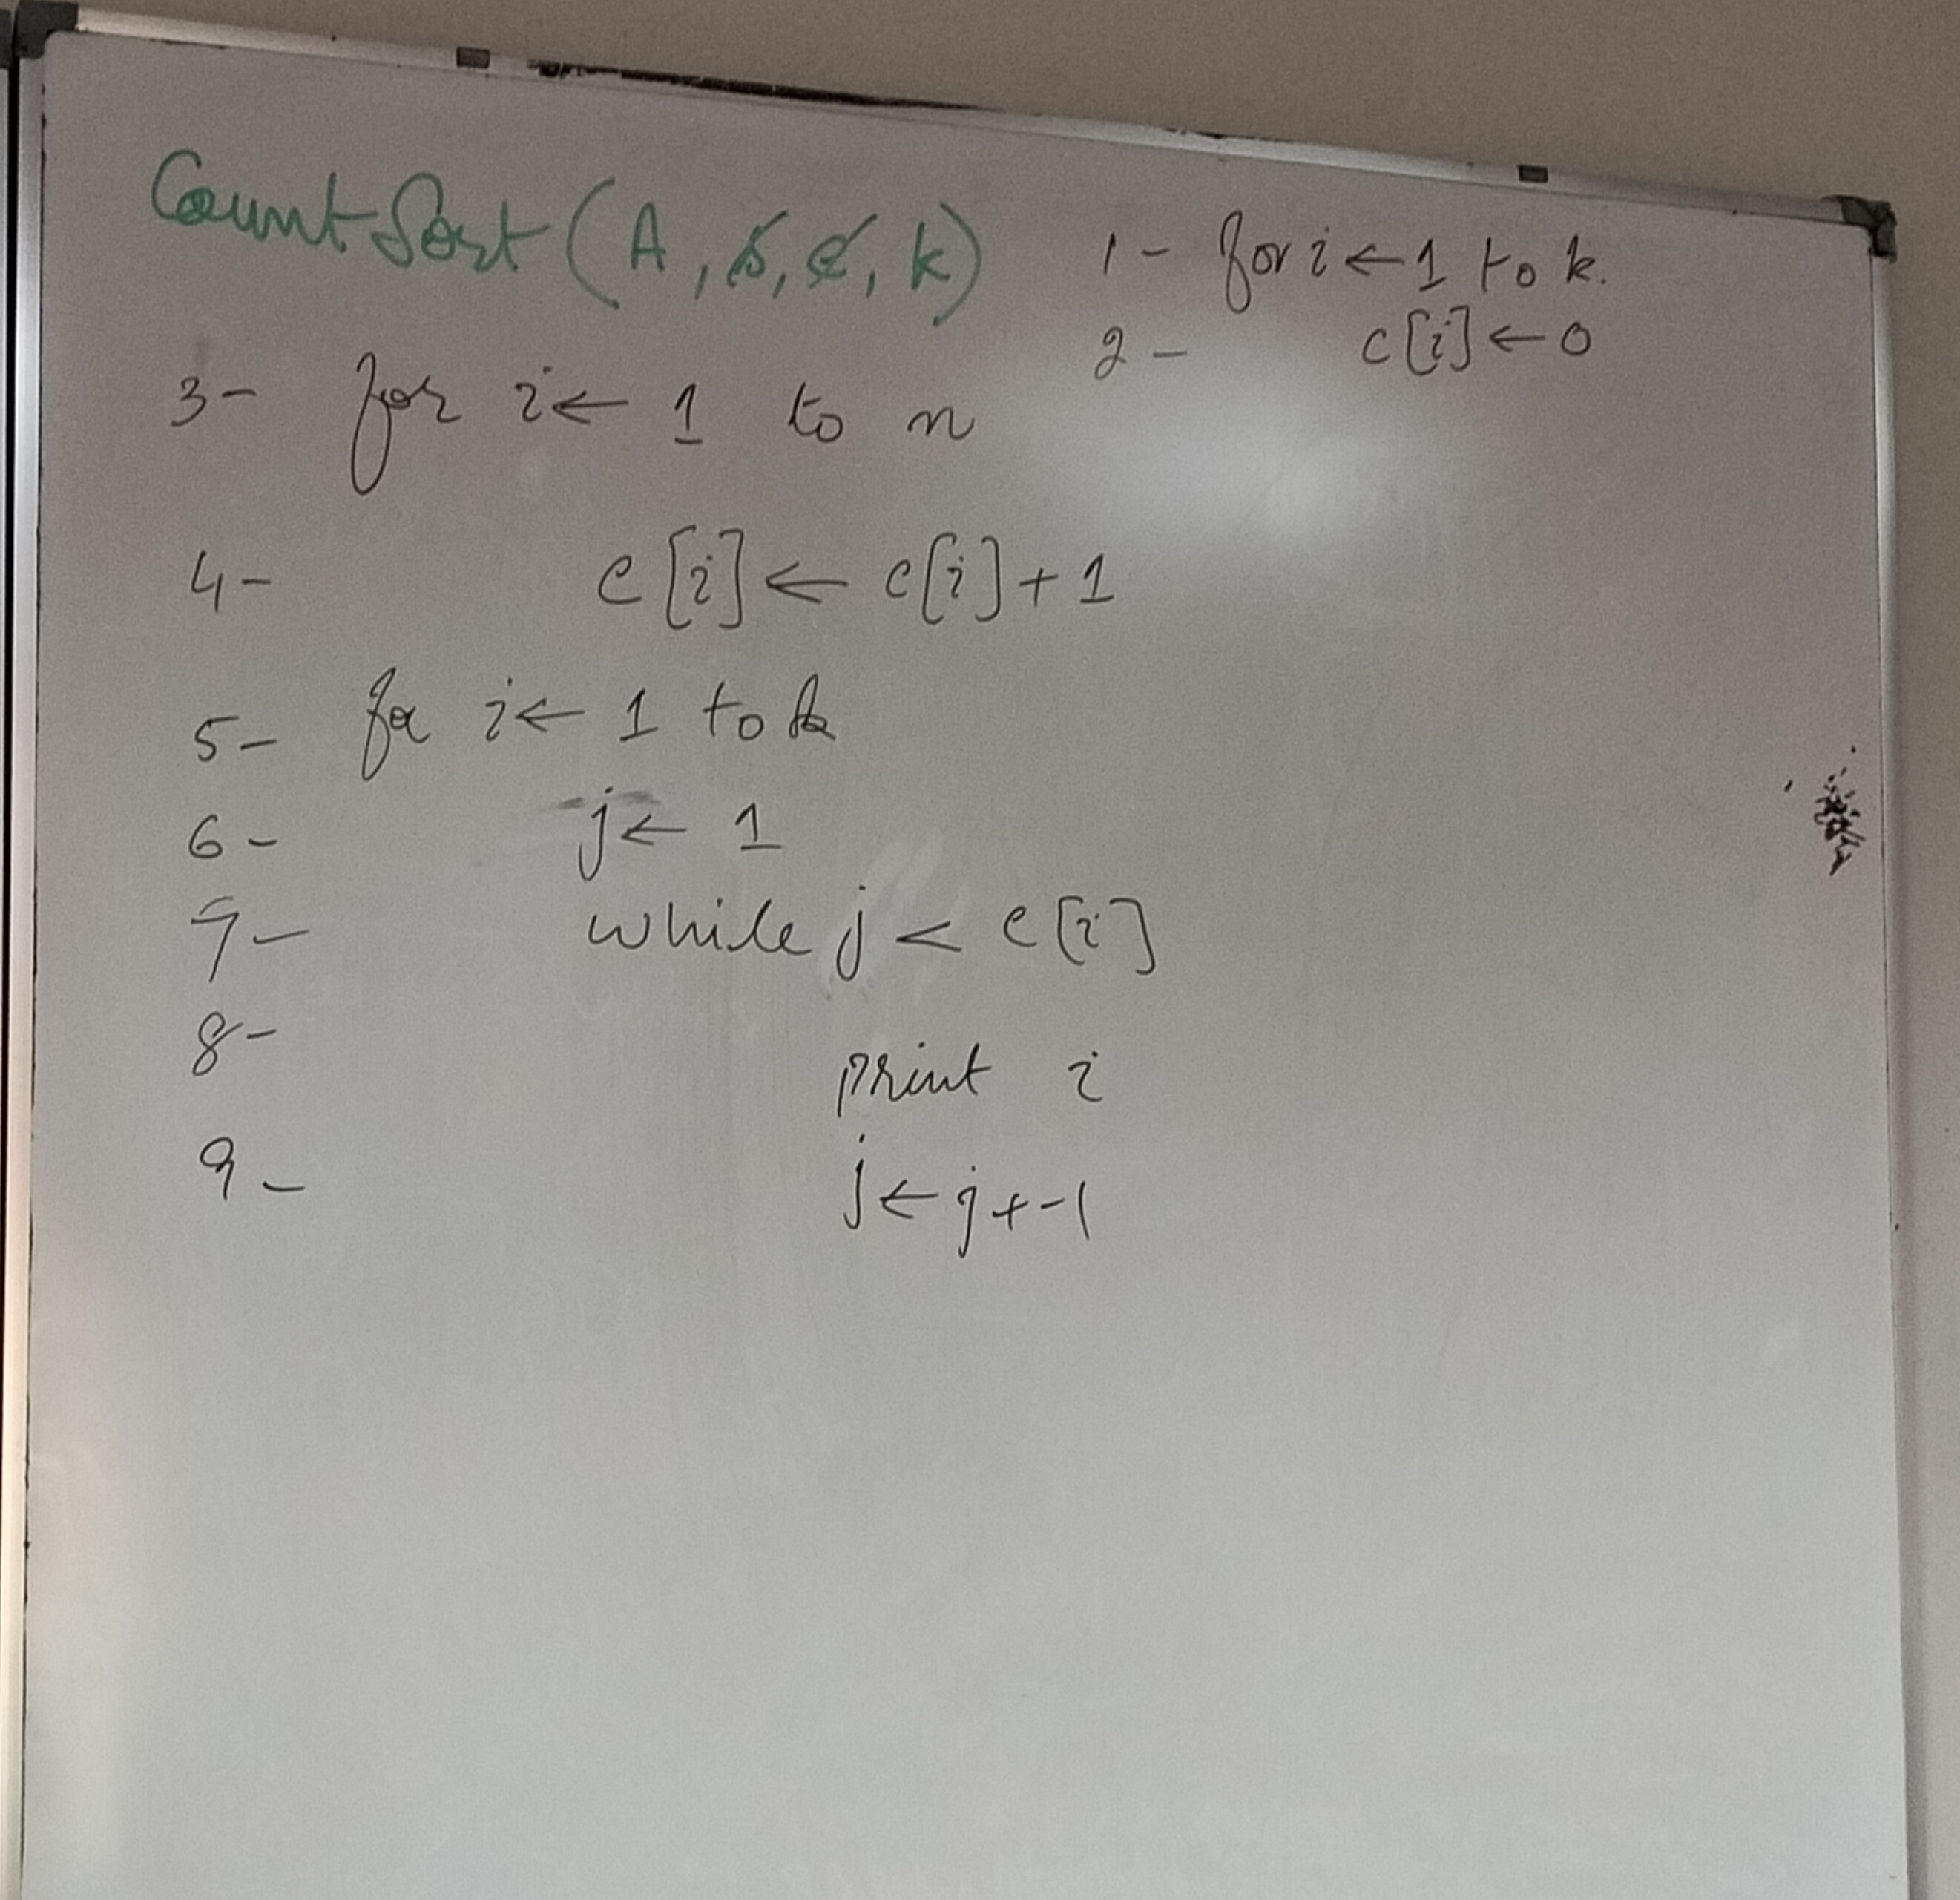 Count Sort (A, B, C, k)
1- for i ← 1 to k.
2- c[i] ← 0
3- for i ← 1 to n
4- c[i] ← c[i] + 1
5- for i ← 1 to k
6- j ← 1
7- while j < c[i]
8- print i
9- j ← j + 1